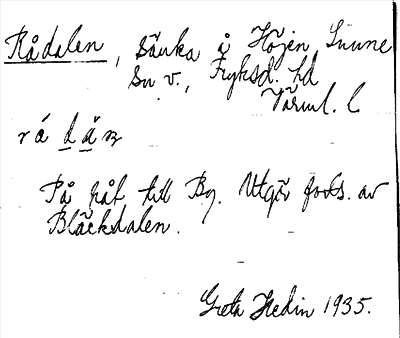 Rådalen, sänka å Höjen, Sunne
Sn v., Fryksd. hd
Värml. l.
rá dän
På håt till By. Utgör forts. av
Bläckdalen.
Greta Hedin 1935.